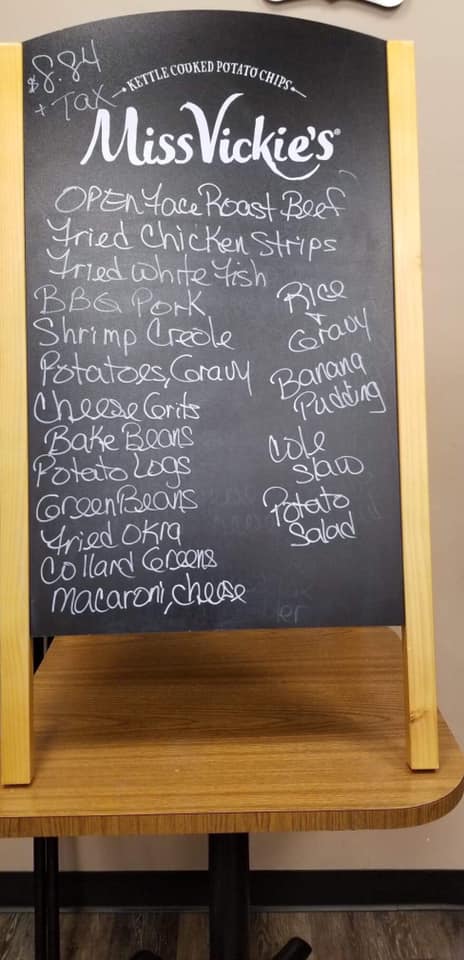 $8.84
+ Tax
KETTLE COOKED POTATO CHIPS
Miss Vickie's®
OPEN Face Roast Beef
Fried Chicken Strips
Fried white Fish
BBQ Pork
Shrimp Creole
Potatoes, Gravy
Cheese Grits
Bake Beans
Potato Logs
Green Beans
Fried Okra
Collard Greens
macaroni, cheese
Rice
+
Gravy
Banana
Pudding
Cole
Slaw
Potato
Salad
er